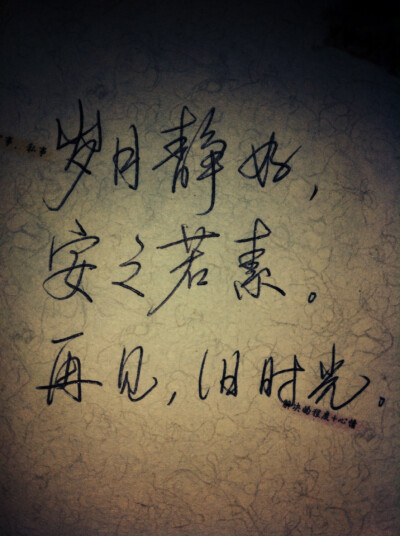 岁月静好，
安之若素。
再见，旧时光。